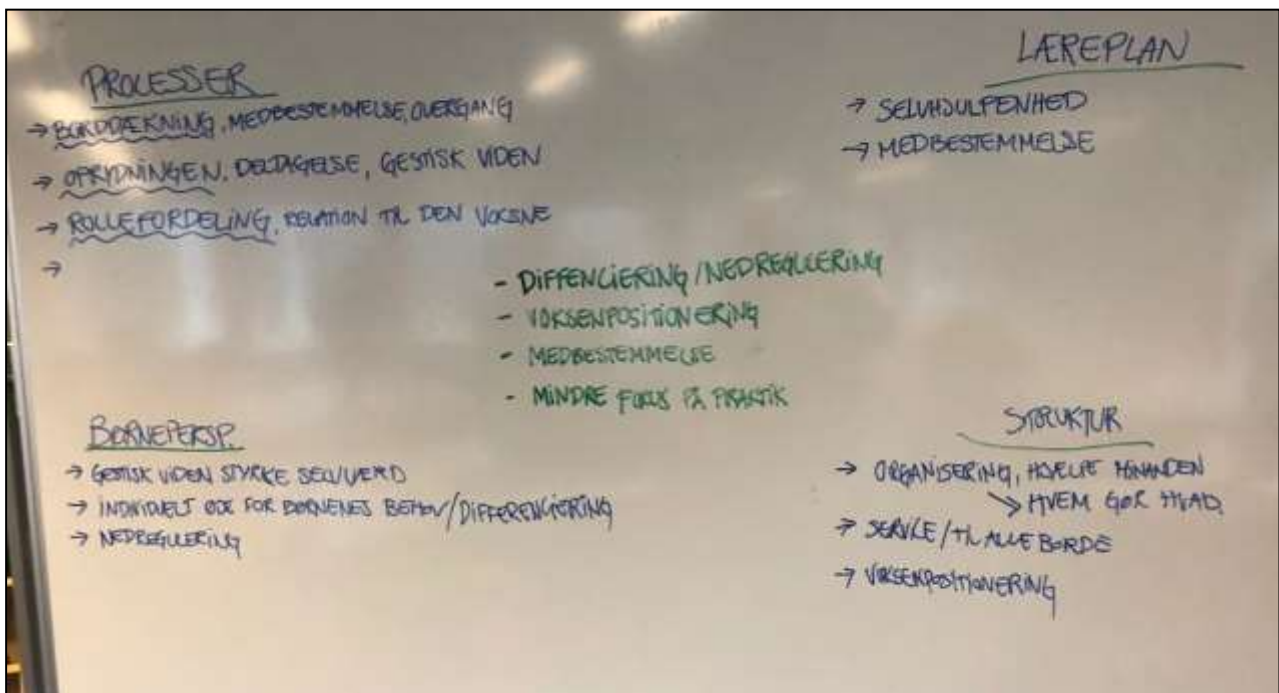 PROCESSER
→ BORDDÆKNING, MEDBESTEMMELSE, OVERGANG
→ OPRYDNINGEN, DELTAGELSE, GESTISK VIDEN
→ ROLLEFORDELING, RELATION TIL DEN VOKSNE
→
LÆREPLAN
→ SELVHJULPENHED
→ MEDBESTEMMELSE
- DIFFENCIERING/NEDREGULERING
- VOKSENPOSITIONERING
- MEDBESTEMMELSE
- MINDRE FOKUS PÅ PRAKTIK
BØRNEPERSP.
→ GESTISK VIDEN STYRKE SELVVÆRD
→ INDIVIDUELT ØJE FOR BØRNENES BEHOV/DIFFERENCIERING
→ NEDREGULERING
STRUKTUR
→ ORGANISERING, HJÆLPE HINANDEN
→ HVEM GØR HVAD
→ SERVICE/TIL ALLE BORDE
→ VOKSENPOSITIONERING